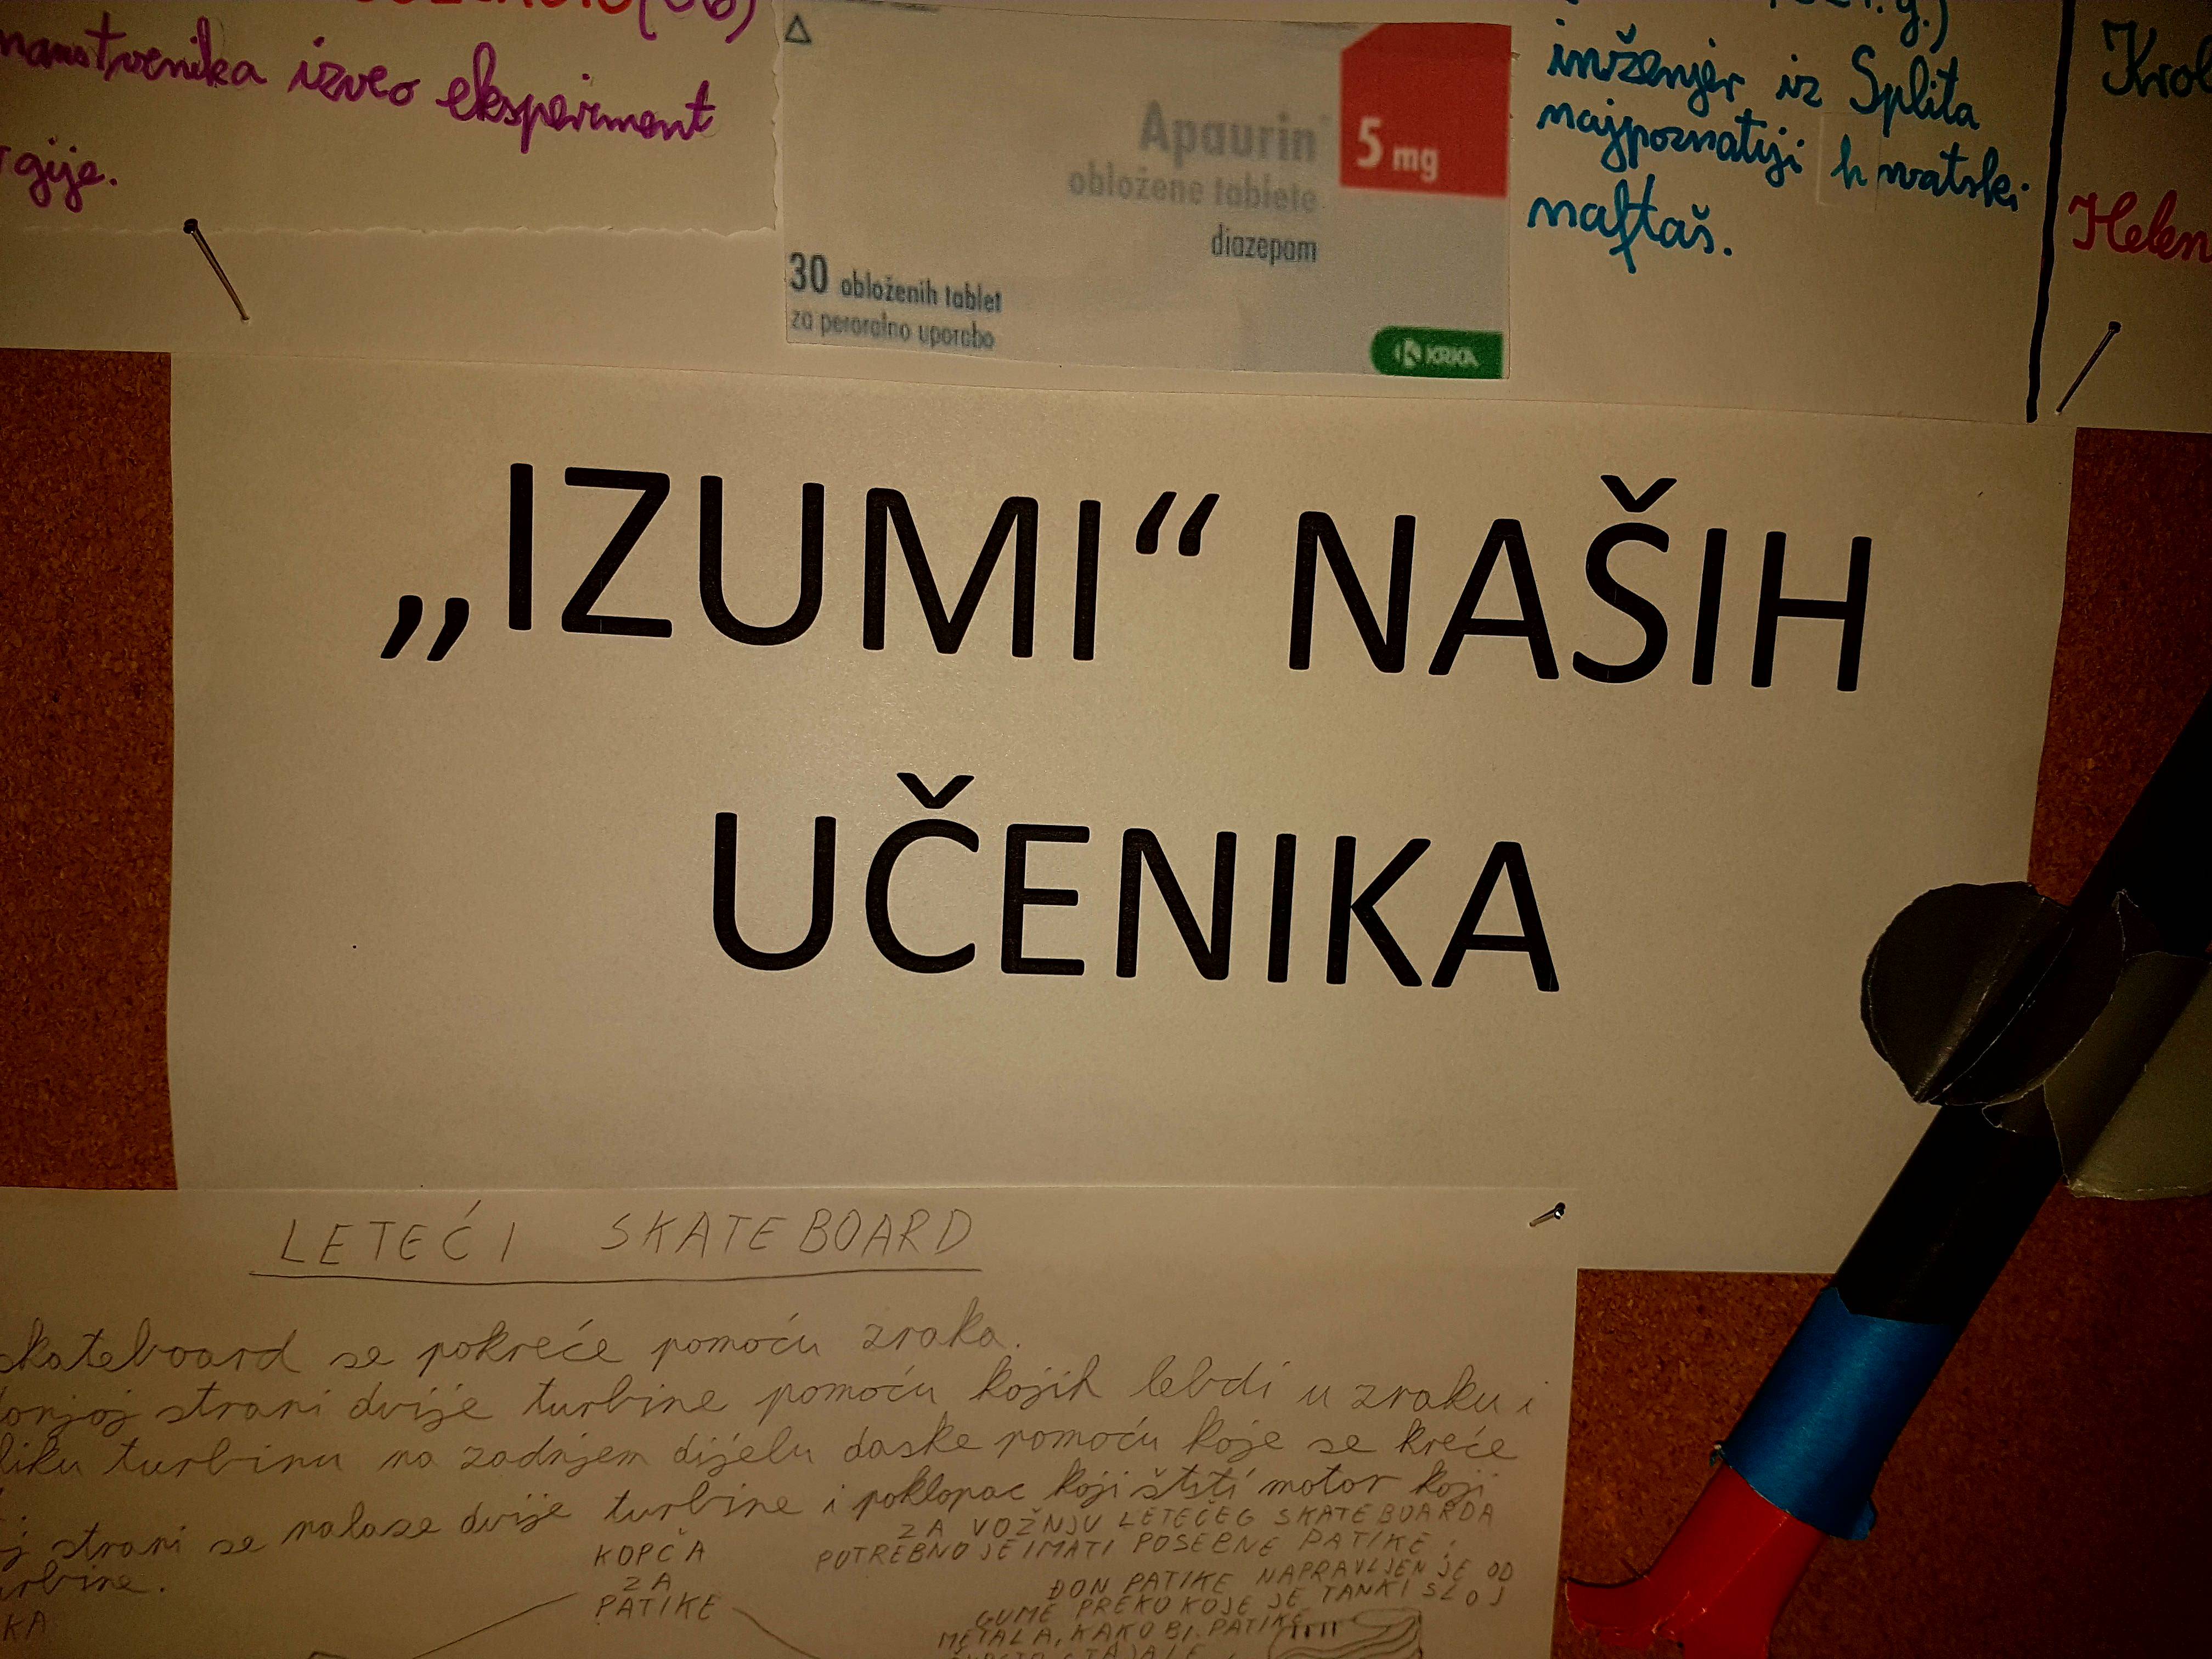 znanstvenika izveo eksperiment
gije.
Apaurin
obložene tablete
diazepam
5 mg
30 obloženih tablet
za peroralno uporabo
KRKA
inženjer iz Splita
najpoznatiji hrvatski
naftaš.
„IZUMI“ NAŠIH
UČENIKA
LETEĆI SKATEBOARD
skateboard se pokreće pomoću zraka.
donjoj strani dvije turbine pomoću kojih lebdi u zraku i
liku turbinu na zadnjem dijelu daske pomoću koje se kreće
j strani se nalaze dvije turbine i poklopac koji štiti motor koji
KOPČA
ZA
PATIKE
ZA VOŽNJU LETEĆEG SKATEBOARDA
POTREBNO JE IMATI POSEBNE PATIKE
ĐON PATIKE NAPRAVLJEN JE OD
GUME PREKO KOJE JE TANKI SLOJ
METALA, KAKO BI PATIKE